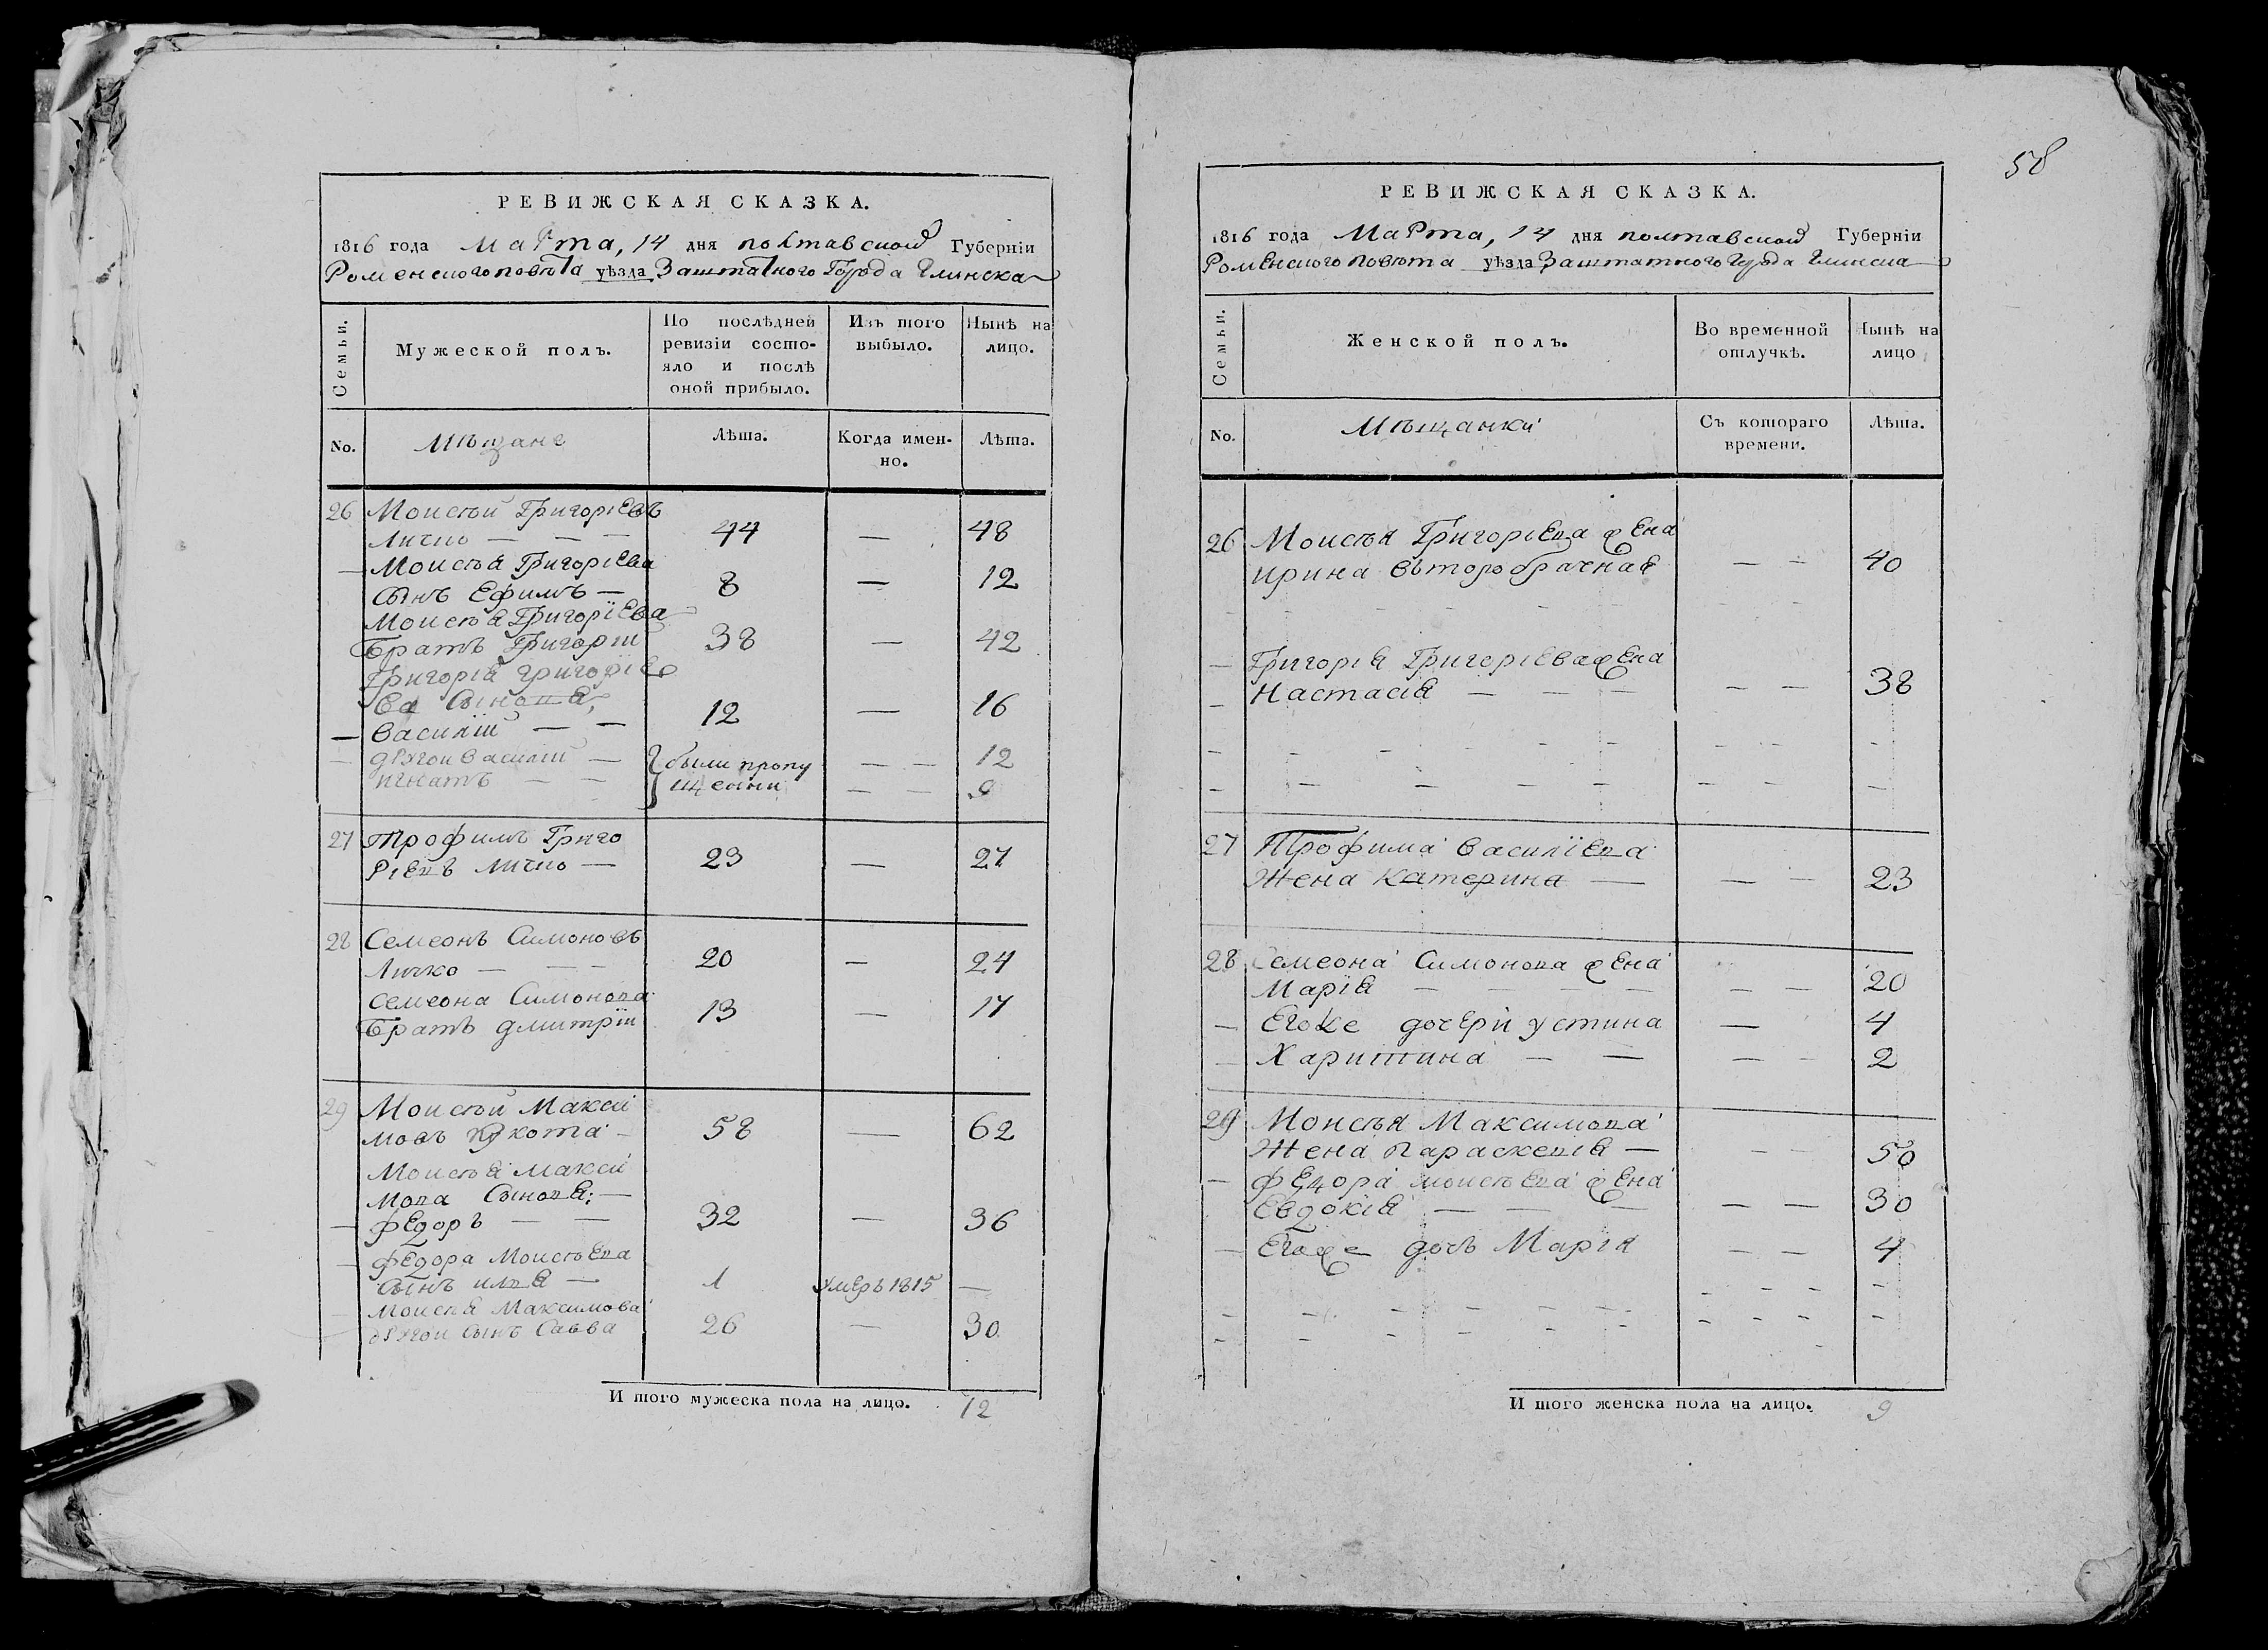 58
РЕВИЖСКАЯ СКАЗКА.
1816 года Марта, 14 дня полтавской Губерніи
Роменского повѣта уѣзда Заштатного Города Глинска
Семьи.
Мужеской полъ.
По послѣдней
ревизіи состо-
яло и послѣ
оной прибыло.
Изъ того
выбыло.
Нынѣ на
лицо.
No.
Мѣщане
Лѣта.
Когда имен-
но.
Лѣта.
26 Моисѣй Григоріевъ
Личко — — — 44 — 48
— Моисѣя Григоріева
сынъ Ефимъ — 8 — 12
Моисѣя Григоріева
Братъ Григорій 38 — 42
Григорія Григоріе
ва Сыновя;
— Василій — — 12 — 16
— другой Василій — были пропу — — 12
Игнатъ — — щенни — — 9
27 Трофимъ Григо
ріевъ Личко — 23 — 27
28 Семеонъ Симоновъ
Личко — — — 20 — 24
Семеона Симонова
Братъ Дмитрій 13 — 17
29 Моисѣй Макси
мовъ 58 — 62
Моисѣя Макси
мова Сыновя; —
— Федоръ — — 32 — 36
— Федора Моисѣева
сынъ Илья — 1 умеръ 1815 —
— Моисѣя Максимова
другой сынъ Савва 26 — 30
И того мужеска пола на лицо. 12
РЕВИЖСКАЯ СКАЗКА.
1816 года Марта, 14 дня полтавской Губерніи
Роменского повѣта уѣзда Заштатного Города Глинска
Семьи.
Женской полъ.
Во временной
отлучкѣ.
Нынѣ на
лицо
No.
Мѣщанки
Съ котораго
времени.
Лѣта.
26 Моисѣя Григоріева жена
Ирина второбрачная — — 40
— Григорія Григоріева жена
— Настасія — — — — — 38
27 Трофима Василіева
Жена Катерина — — — 23
28 Семеона Симонова жена
Марія — — — — — — 20
— Егоже дочери Устина — 4
— Харитина — — — — 2
29 Моисѣя Максимова
Жена Параскевія — — — 50
— Федора Моисѣева жена
Евдокія — — — — — 30
— Егоже дочь Марія — — 4
И того женска пола на лицо. 9